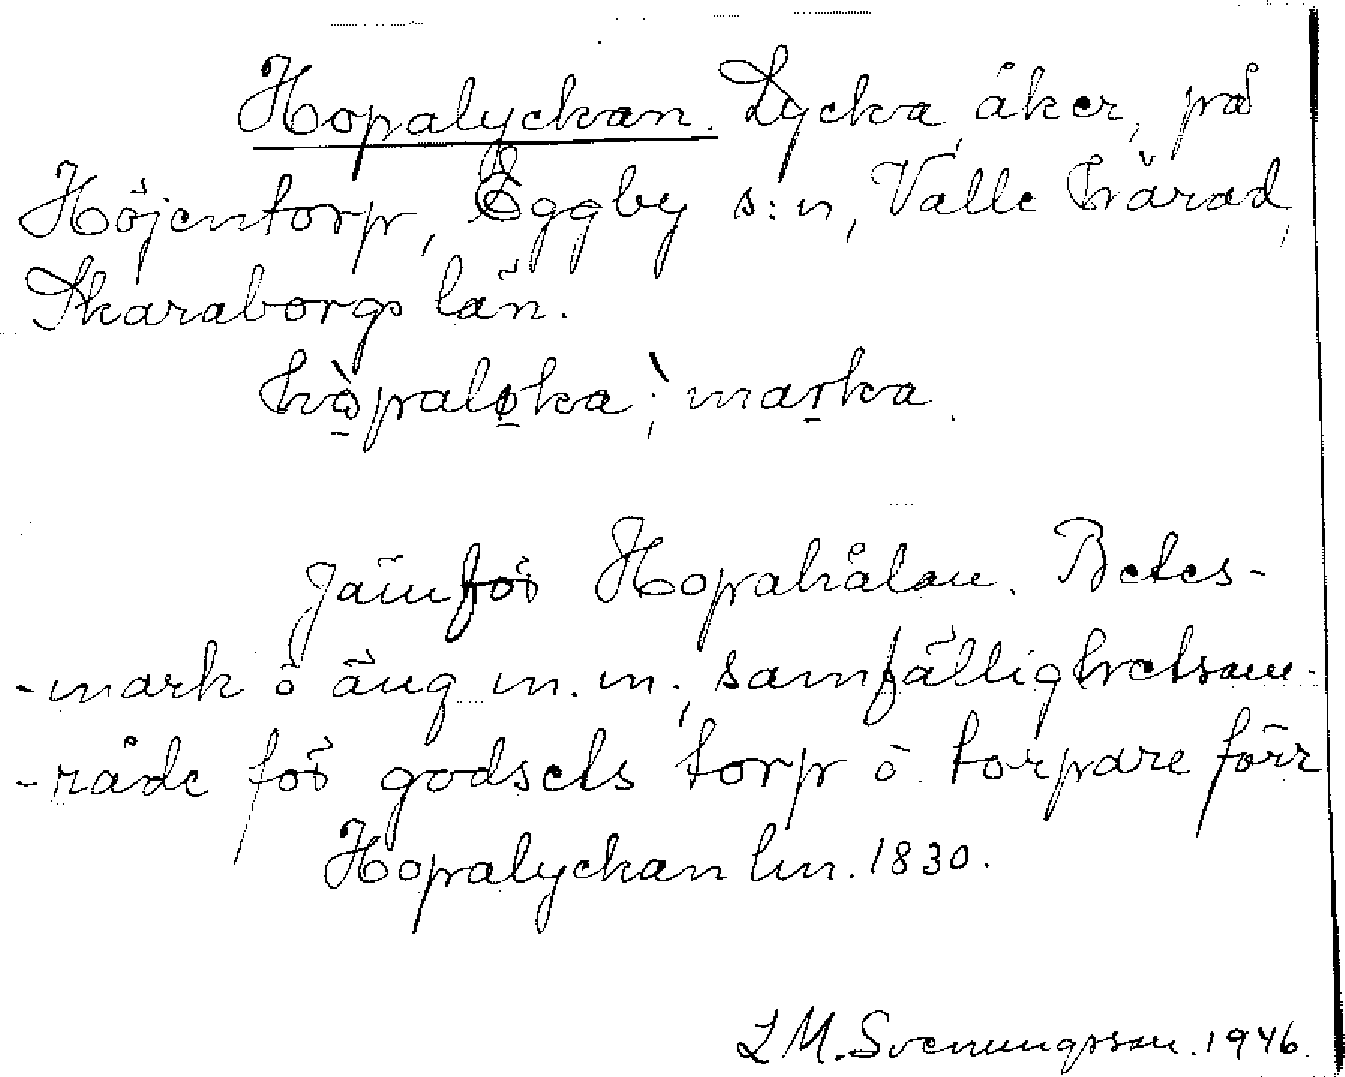 Hopalyckan. Lycka, åker, på
Höjentorp, Eggby s:n, Valle härad,
Skaraborgs län.
hòpaløka; marka.
Jämför Hopahålan. Betes-
-mark o äng m.m., samfällighetsom-
-råde för godsets torp o torpare förr
Hopalyckan lm. 1830.
L M. Svenungsson. 1946.